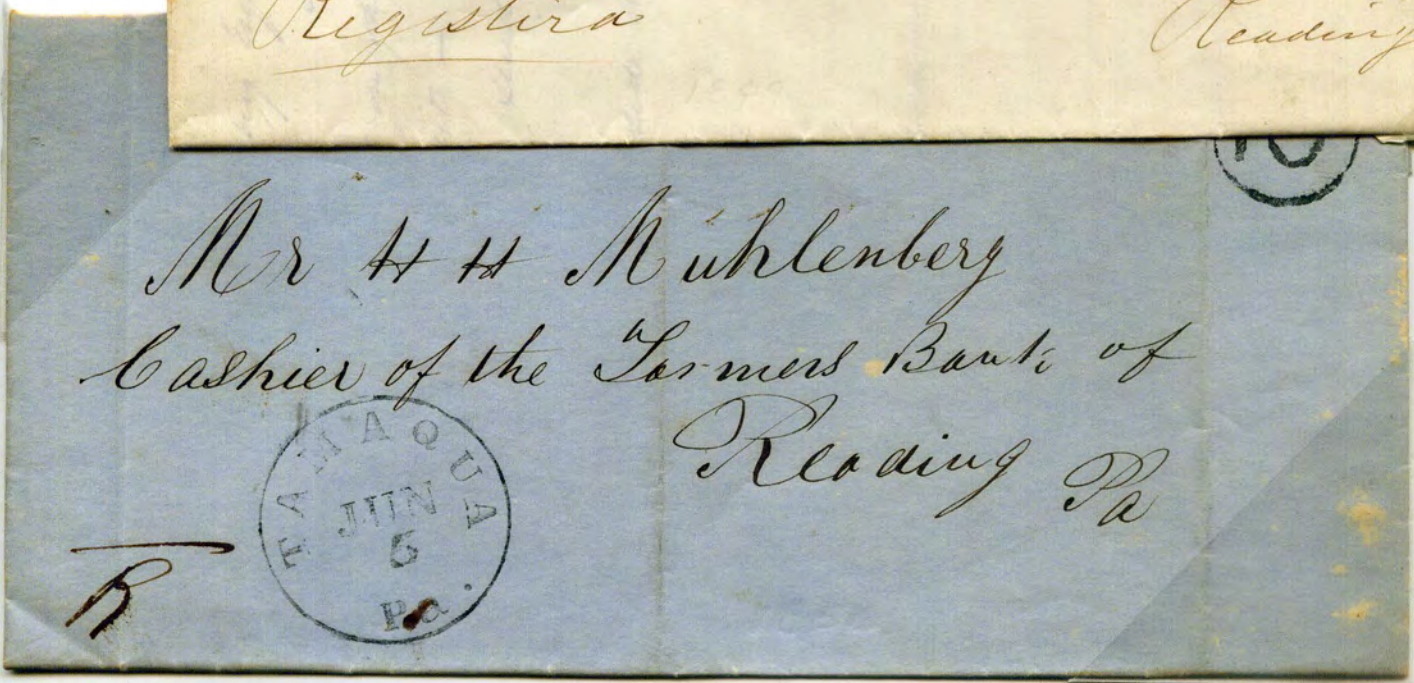 Registerd Reading
10
Mr H H Muhlenberg
Cashier of the Farmers Bank of
Reading Pa
TAMAQUA
JUN
5
Pa.
R